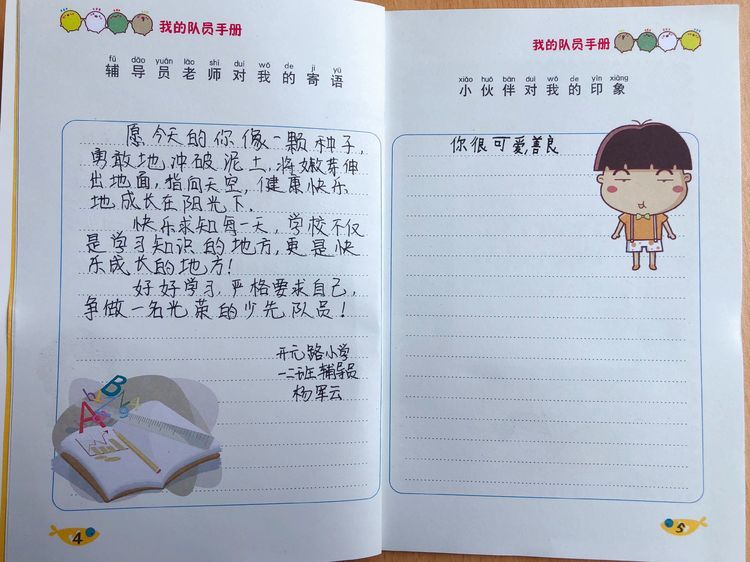 我的队员手册
fǔ dǎo yuán lǎo shī duì wǒ de jì yǔ
辅导员老师对我的寄语
愿今天的你像一颗种子,
勇敢地冲破泥土,将嫩芽伸
出地面,指向天空,健康快乐
地成长在阳光下.
快乐求知每一天,学校不仅
是学习知识的地方,更是快
乐成长的地方!
好好学习,严格要求自己,
争做一名光荣的少先队员!
开元路小学
一二班辅导员
杨军云
A B
4
我的队员手册
xiǎo huǒ bàn duì wǒ de yìn xiàng
小伙伴对我的印象
你很可爱,善良
5